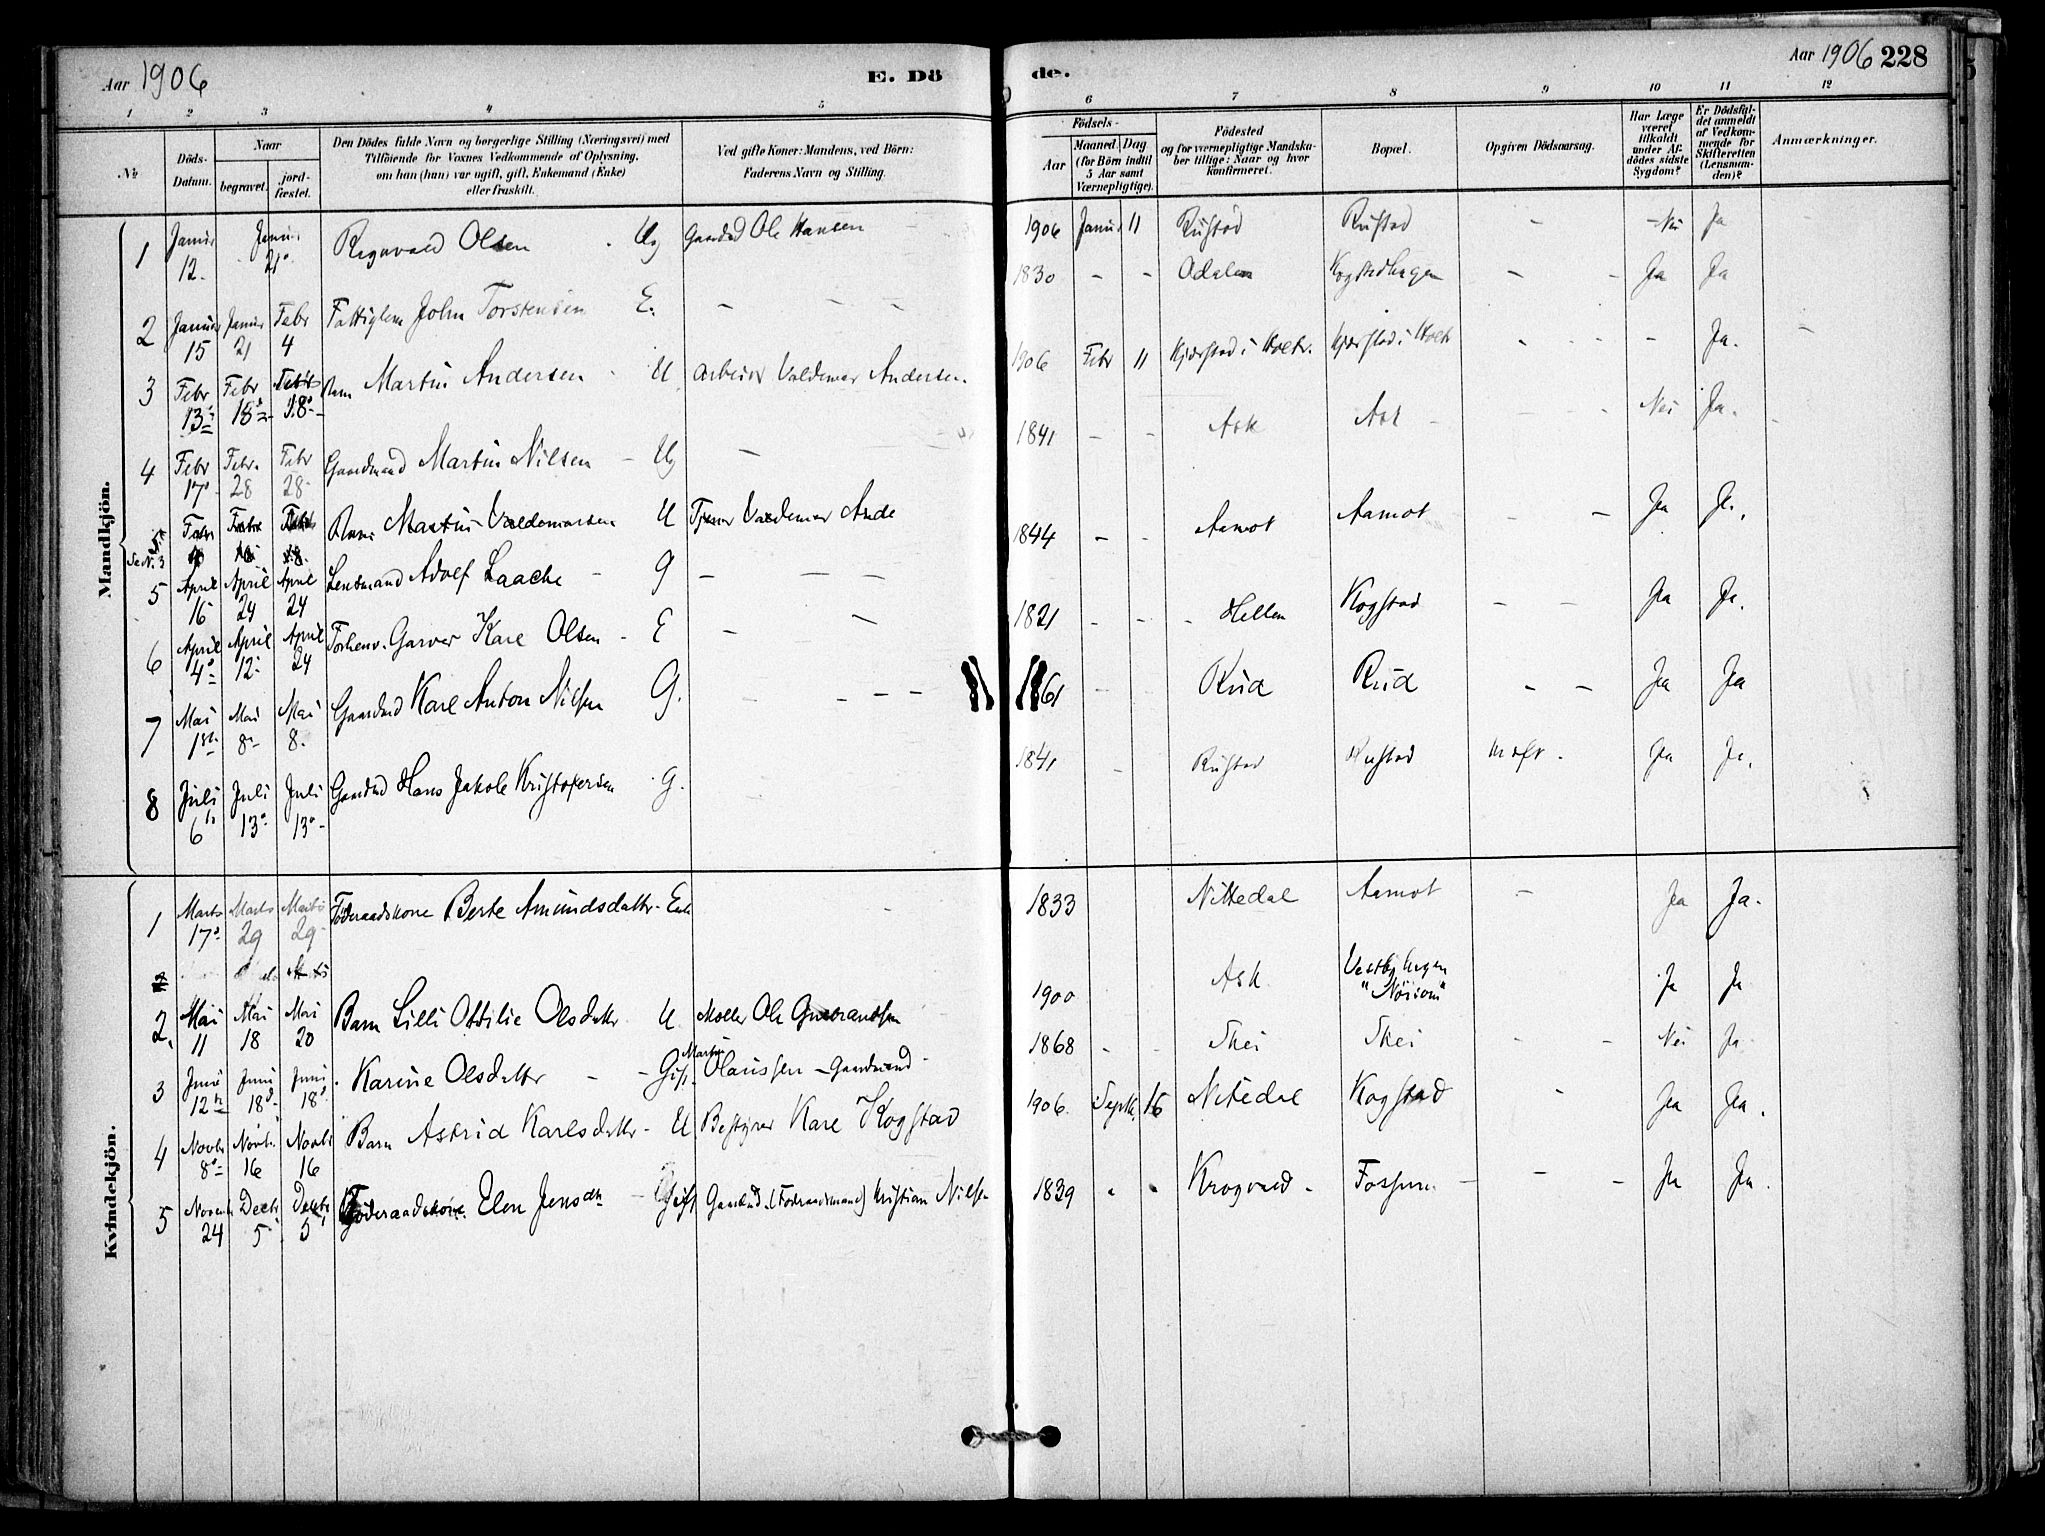 Aar 1906 E. Dö
de. Aar 1906 228
1 2 3 4 5 6 7 8 9 10 11 12
№
Döds-Datum.
Naar
begravet.
jord-fæstet.
Den Dödes fulde Navn og borgerlige Stilling (Næringsvei) med
Tilföiende for Voxnes Vedkommende af Oplysning,
om han (hun) var ugift, gift, Enkemand (Enke)
eller fraskilt.
Ved gifte Koner: Mandens, ved Börn:
Faderens Navn og Stilling.
Födsels-
Aar
Maaned. Dag
(for Börn indtil
5 Aar samt
Værnepligtige).
Födested
og for værnepligtige Mandska-
ber tillige: Naar og hvor
konfirmeret.
Bopæl.
Opgiven Dödsaarsag.
Har Læge
været
tilkaldt
under Af-
dödes sidste
Sygdom?
Er Dödsfal-
det anmeldt
af Vedkom-
mende for
Skifteretten
(Lensman-
den)?
Anmærkninger.
Mandkjön.
1 Januar 12. Januar 21 Ragnvald Olsen Ug Gaardbd Ole Hansen 1906 Januar 11 Rustad Rustad - Nei Ja
2 Januar 15 Januar 21 Febr 4 Fattiglem John Torstensen E. - - - 1830 - - Odalen Kogstadhagen - - Ja Ja
3 Febr 13 Febr 18 Febr 18 Barn Martin Andersen U Arbeider Valdemar Andersen 1906 Febr 11 Kjærstad i Holtr. Kjærstad i Holtr - - - - Ja.
4 Febr 17 Febr. 28 Febr 28 Gaardmand Martin Nilsen - Ug - 1841 - - Ask Ask - Nei Ja.
Se No. 3 Febr Febr Febr 18 Barn Martin Valdemarsen U Tjener Valdemar Ande
5 April 16 April 24 April 24 Lensmand Adolf Laache - G - - - 1844 - - Aamot Aamot - - Ja Ja.
6 April 4 April 12 April 24 Forhenv. Garver Karl Olsen - E - - 1821 - - Hellen Kogstad - - Ja Ja.
7 Mai 1 Mai 8 Mai 8. Gaardbd Karl Anton Nilsen G. - - - - 1861 - - Rud Rud - - Ja Ja
8 Juli 6 Juli 13 Juli 13 Gaardbd Hans Jakob Kristofersen G. 1841 - Rustad Rustad Ja Ja.
Kvindekjön.
1 Marts 17 Marts 29 Marts 29 Föderaadskone Berte Amundsdatter - Enke - 1833 Nittedal Aamot - Ja Ja.
2. Mai 11 Mai 18 Mai 20 Barn Lilli Ottilie Olsdatter U Møller Ole Gulbrandsen 1900 Ask Vestbyhagen "Norsom" Ja Ja
3 Juni 12 Juni 18 Juni 18 Karine Olsdatter - - Gift. Martin Olaussen - Gaardmand - 1868 - - Skei Skei - - Nei Ja
4 Novbr 8 Novbr. 16 Novbr 16 Barn Astrid Karlsdatter - U Bestyrer Karl Kogstad 1906 Septbr 16 Nitedal Kogstad - Ja Ja.
5 Novembr 24 Decbr 5 Decbr 5 Föderaadskone Elen Jensdtr - Gift Gaardbd. (Föderaadsmand) Kristian Nilsen 1839 Krogvend. Fossum - - - Ja Ja.